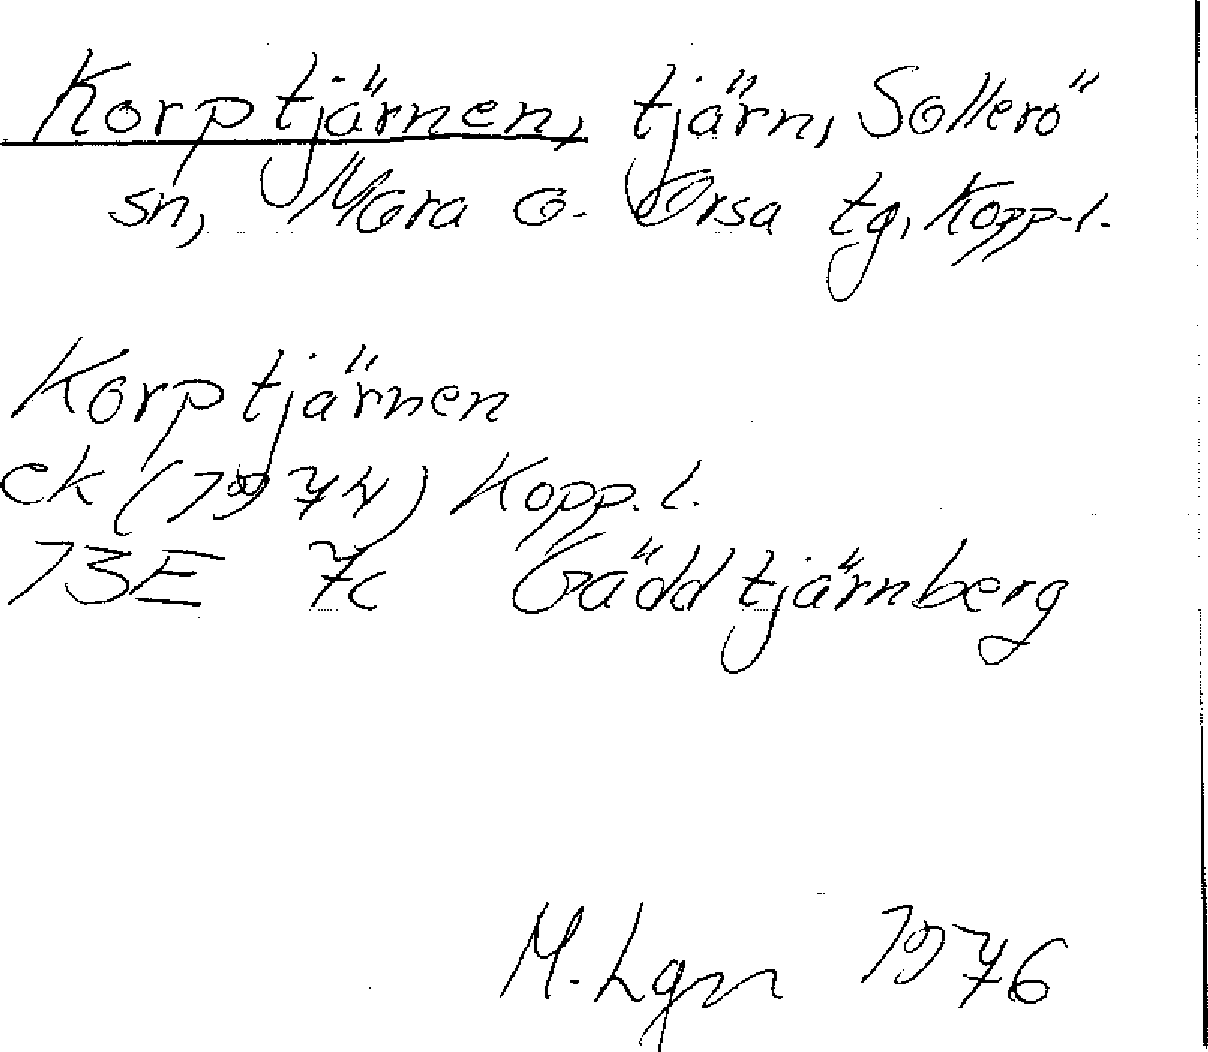 Korptjärnen, tjärn, Sollerö
sn, Mora o. Orsa tg, Kopp.l.
Korptjärnen
ek (1974) Kopp. l.
13E 7c Gäddtjärnberg
M. Lgn 1976